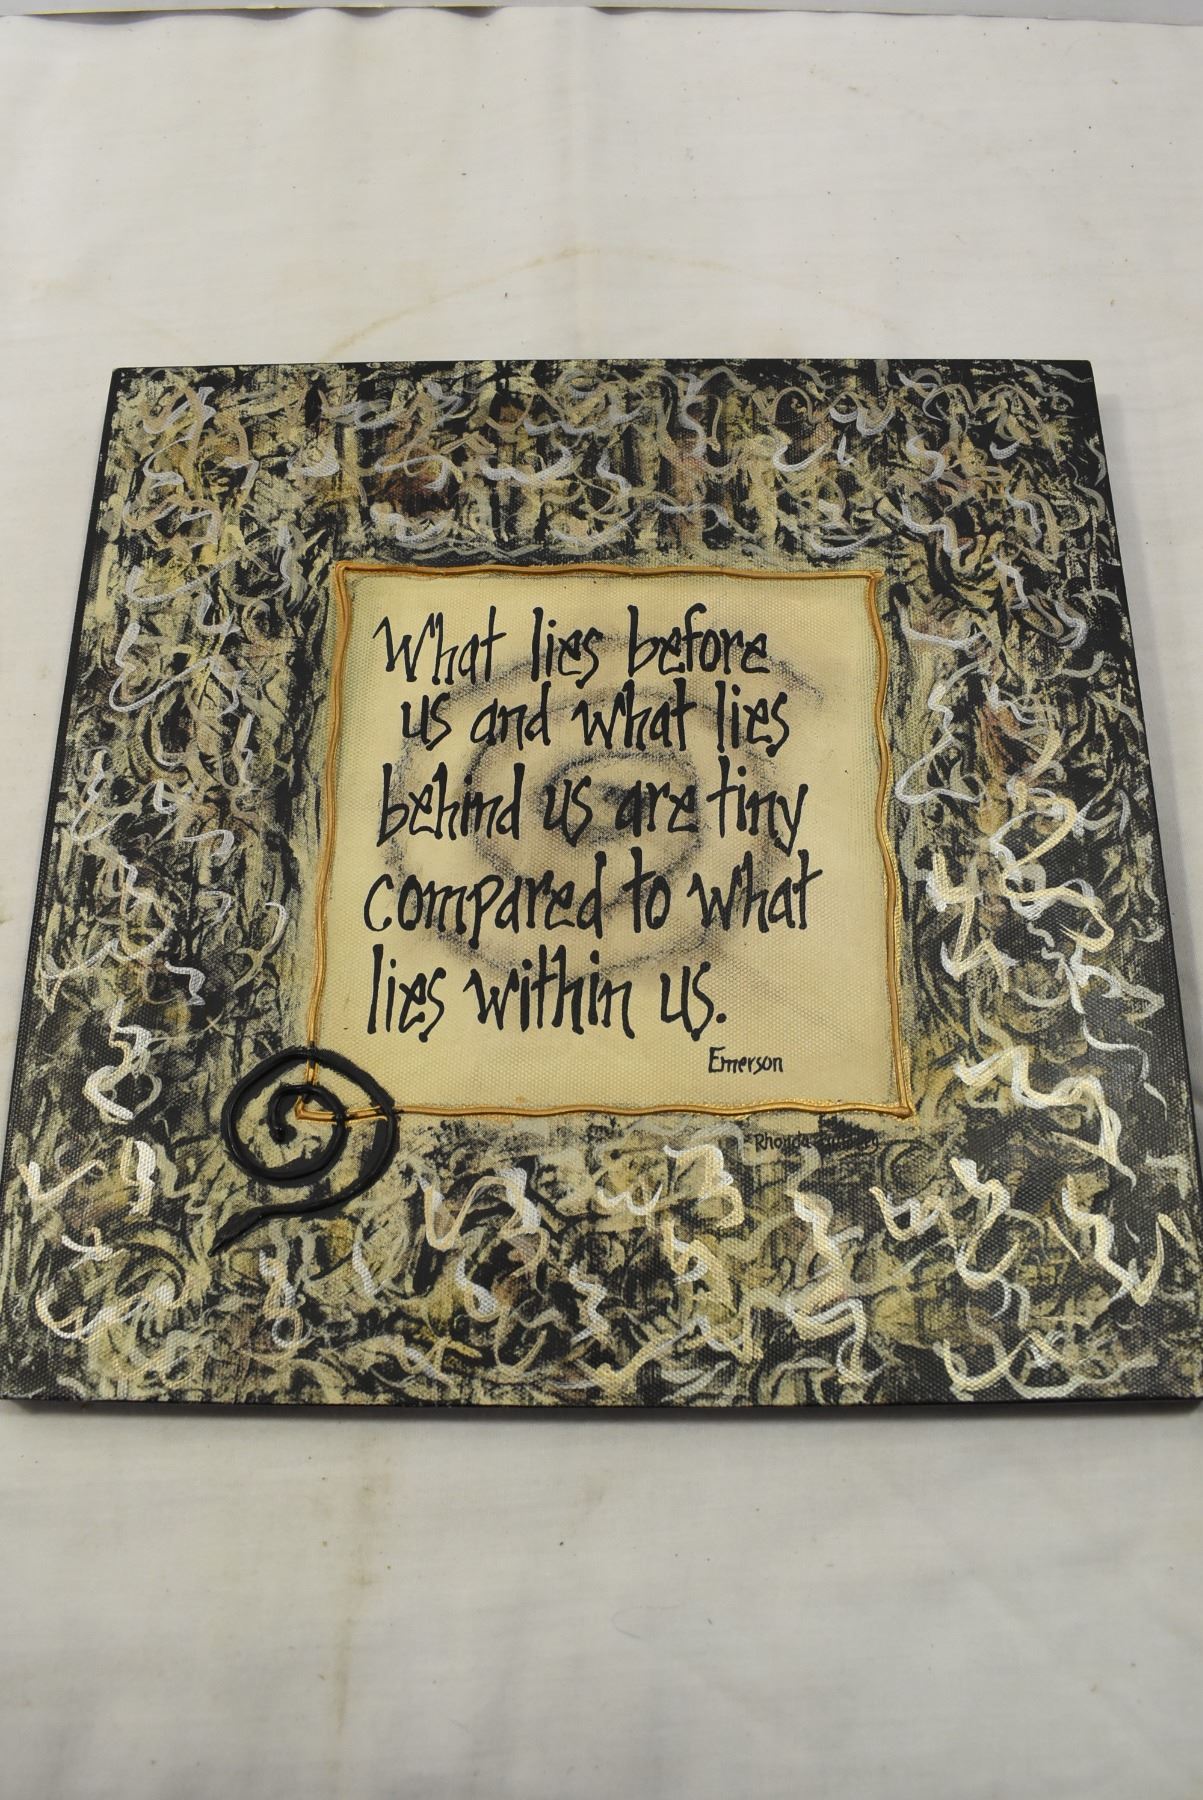 What lies before
us and what lies
behind us are tiny
compared to what
lies within us.
Emerson
Rhonda